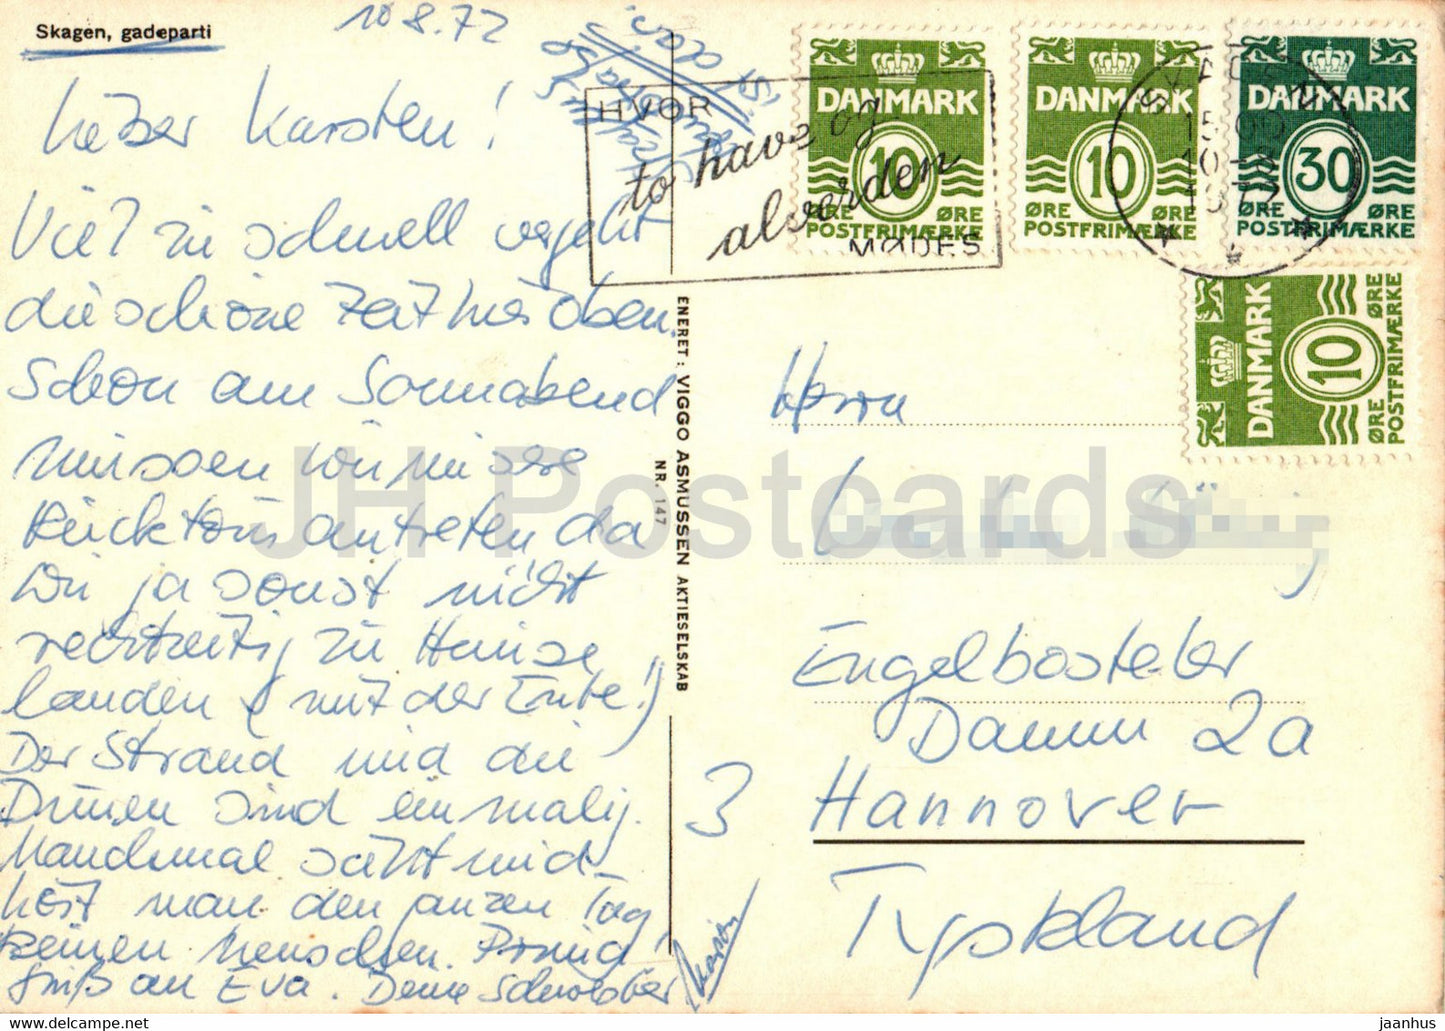 Skagen, gadeparti
10 8.72
Lieber Karsten!
Viel zu schnell vergeht
die schöne Zeit hier oben.
Schon am Sonnabend
müssen wir unsere
Rücktour antreten da
wir ja sonst nicht
rechtzeitig zu Hause
landen (mit der Ente!)
Der Strand und die
Dünen sind einmalig.
Manchmal sieht und
hört man den ganzen Tag
keinen Menschen.
Gruß an Eva. Deine Schwester
ist der
HVOR
to have og
alverden
MØDES
DANMARK
10
ØRE ØRE
POSTFRIMÆRKE
DANMARK
10
ØRE ØRE
POSTFRIMÆRKE
DANMARK
30
ØRE ØRE
POSTFRIMÆRKE
DANMARK
10
ØRE ØRE
POSTFRIMÆRKE
SKAGEN
15.00
10-8
1972
ENERET: VIGGO ASMUSSEN AKTIESELSKAB
NR. 147
Herrn
Engelbosteler
Damm 2a
3 Hannover
Tyskland
JH Postcards
jaanhus — https://www.ebay.com/usr/jaanhus